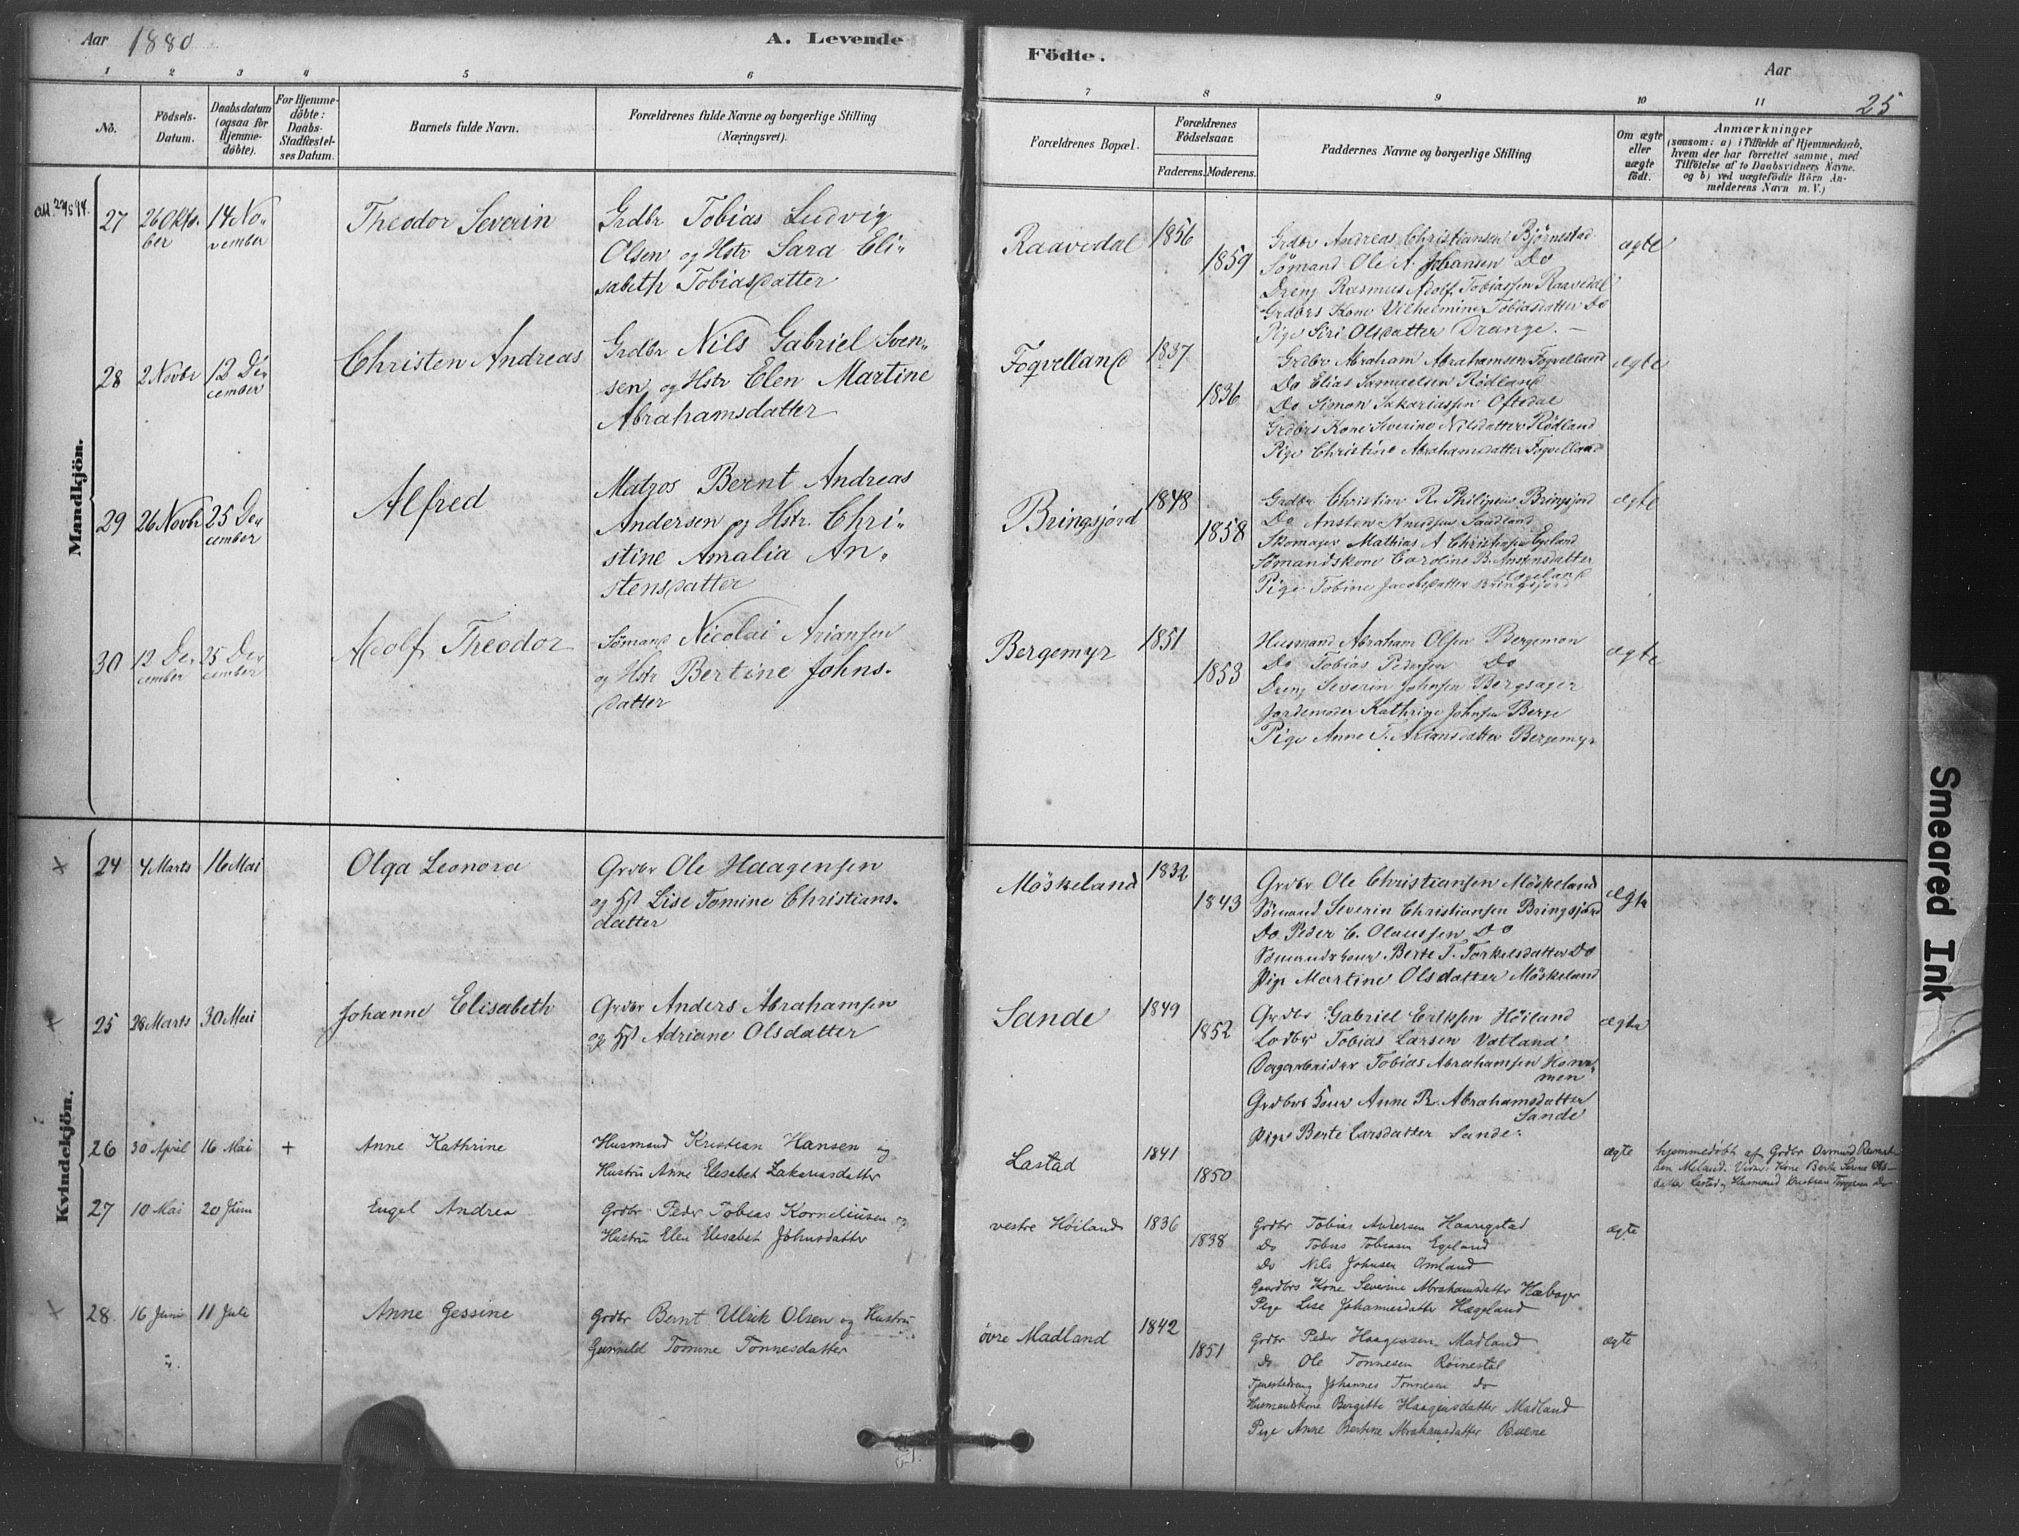 Aar 1880
A. Levende Födte.
Aar
25
1 2 3 4 5 6 7 8 9 10 11
No.
Födsels-Datum.
Daabsdatum (ogsaa for Hjemme-döbte).
For Hjemme-döbte: Daabs-Stadfæstel-ses Datum.
Barnets fulde Navn.
Forældrenes fulde Navne og borgerlige Stilling (Næringsvei).
Forældrenes Bopæl.
Forældrenes Födselsaar.
Faderens. Moderens.
Faddernes Navne og borgerlige Stilling
Om ægte eller uægte födt.
Anmærkninger
(saasom: a) i Tilfælde af Hjemmedaab,
hvem der har forrettet samme, med
Tilföielse af to Daabsvidners Navne.
og b) ved uægtefödte Börn An-
melderens Navn m. V.)
Mandkjön.
27 26 Oktober 14 November Theodor Severin
Grdbr Tobias Ludvig
Olsen og Hstr Sara Eli-
sabeth Tobiasdatter
Raavedal 1856 1859
Grdbr Andreas Christiansen Bjørnestad
Sømand Ole A. Johansen Do
Dreng Rasmus Adolf Tobiassen Raavedal
Grdbrs Kone Vilhelmine Tobiasdatter Do
Pige Siri Olsdatter Drange. –
ægte
28 2 Novbr 12 December Christen Andreas
Grdbr Nils Gabriel Sven-
sen og Hstr Elen Martine
Abrahamsdatter
Foqvelland 1837 1836
Grdbr Abraham Abrahamsen Foqvelland
Do Elias Samuelsen Rødland
Do Simon Sakariassen Oftedal
Grdbrs Kone Severine Nilsdatter Rødland
Pige Christine Abrahamsdatter Foqvelland
ægte
29 26 Novbr 25 December Alfred
Matros Bernt Andreas
Andersen og Hstr. Chri-
stine Amalia An-
stensdatter
Bringsjord 1848 1858
Grdbr Christian R. Philipsen Bringsjord
Do Ansten Knudsen Sandland
Skomager Mathias A Christiansen Egeland
Sømandskone Caroline B. Andersdatter
Egeland
Pige Tobine Jacobsdatter Bringsjord
ægte
30 12 December 25 December Adolf Theodor
Sømand Nicolai Ariansen
og Hstr Bertine Johns-
datter
Bergemyr 1851 1853
Husmand Abraham Olsen Bergemon
Do Tobias Pedersen Do
Dreng Severin Johnsen Bergsager
Jordemoder Kathrine Johnsen Berge
Pige Anne T. Ariansdatter Bergemyr
ægte
Kvindekjön.
24 4 Marts 16 Mai Olga Leonora
Grdbr Ole Haagensen
og Hst Lise Tomine Christians-
datter
Møskeland 1832 1843
Grdbr Ole Christiansen Møskeland
Sømand Severin Christiansen Bringsjord
Do Peder C. Olaussen Do
Sømandskone Berte T. Torkelsdatter Do
Pige Martine Olsdatter Møskeland
ægte
25 28 Marts 30 Mai Johanne Elisabeth
Grdbr Anders Abrahamsen
og Hst Adriane Olsdatter
Sande 1849 1852
Grdbr Gabriel Eriksen Høiland
Lodbr Tobias Larsen Vatland
Dagarbeider Tobias Abrahamsen
Grdbrs Kone Anne R. Abrahamsdatter
Sande
Pige Berte Larsdatter Sande.
ægte
26 30 April 16 Mai + Anne Kathrine
Husmand Kristian Hansen og
Hustru Anne Elisabet Zakariasdatter
Lastad 1841 1850
ægte
hjemmedøbt af Grdbr
27 10 Mai 20 Juni Engel Andrea
Grdbr Peder Tobias Korneliusen og
Hustru Elen Elesabet Johnsdatter
vestre Høiland 1836 1838
Grdbr Tobias Andersen Haangstad
Do Tobias Tobiasen Egeland
Do Nils Johnsen Omland
Gaardbrs Kone Severine Abrahamsdatter
Pige Lise Johannesdatter Hægeland
ægte
28 16 Juni 11 Juli Anne Gessine
Grdbr Bernt Ulrik Olsen og Hustru
Gunnild Tomine Tonnesdatter
øvre Madland 1842 1851
Grdbr Peder Haagensen Madland
Do Ole Tonnesen Røinestal
Tjenestedreng Johannes Tonnesen Do
Husmandskone Bergitte Haagensdatter Madland
Pige Anne Bertine Abrahamsdatter
ægte
Smeared Ink